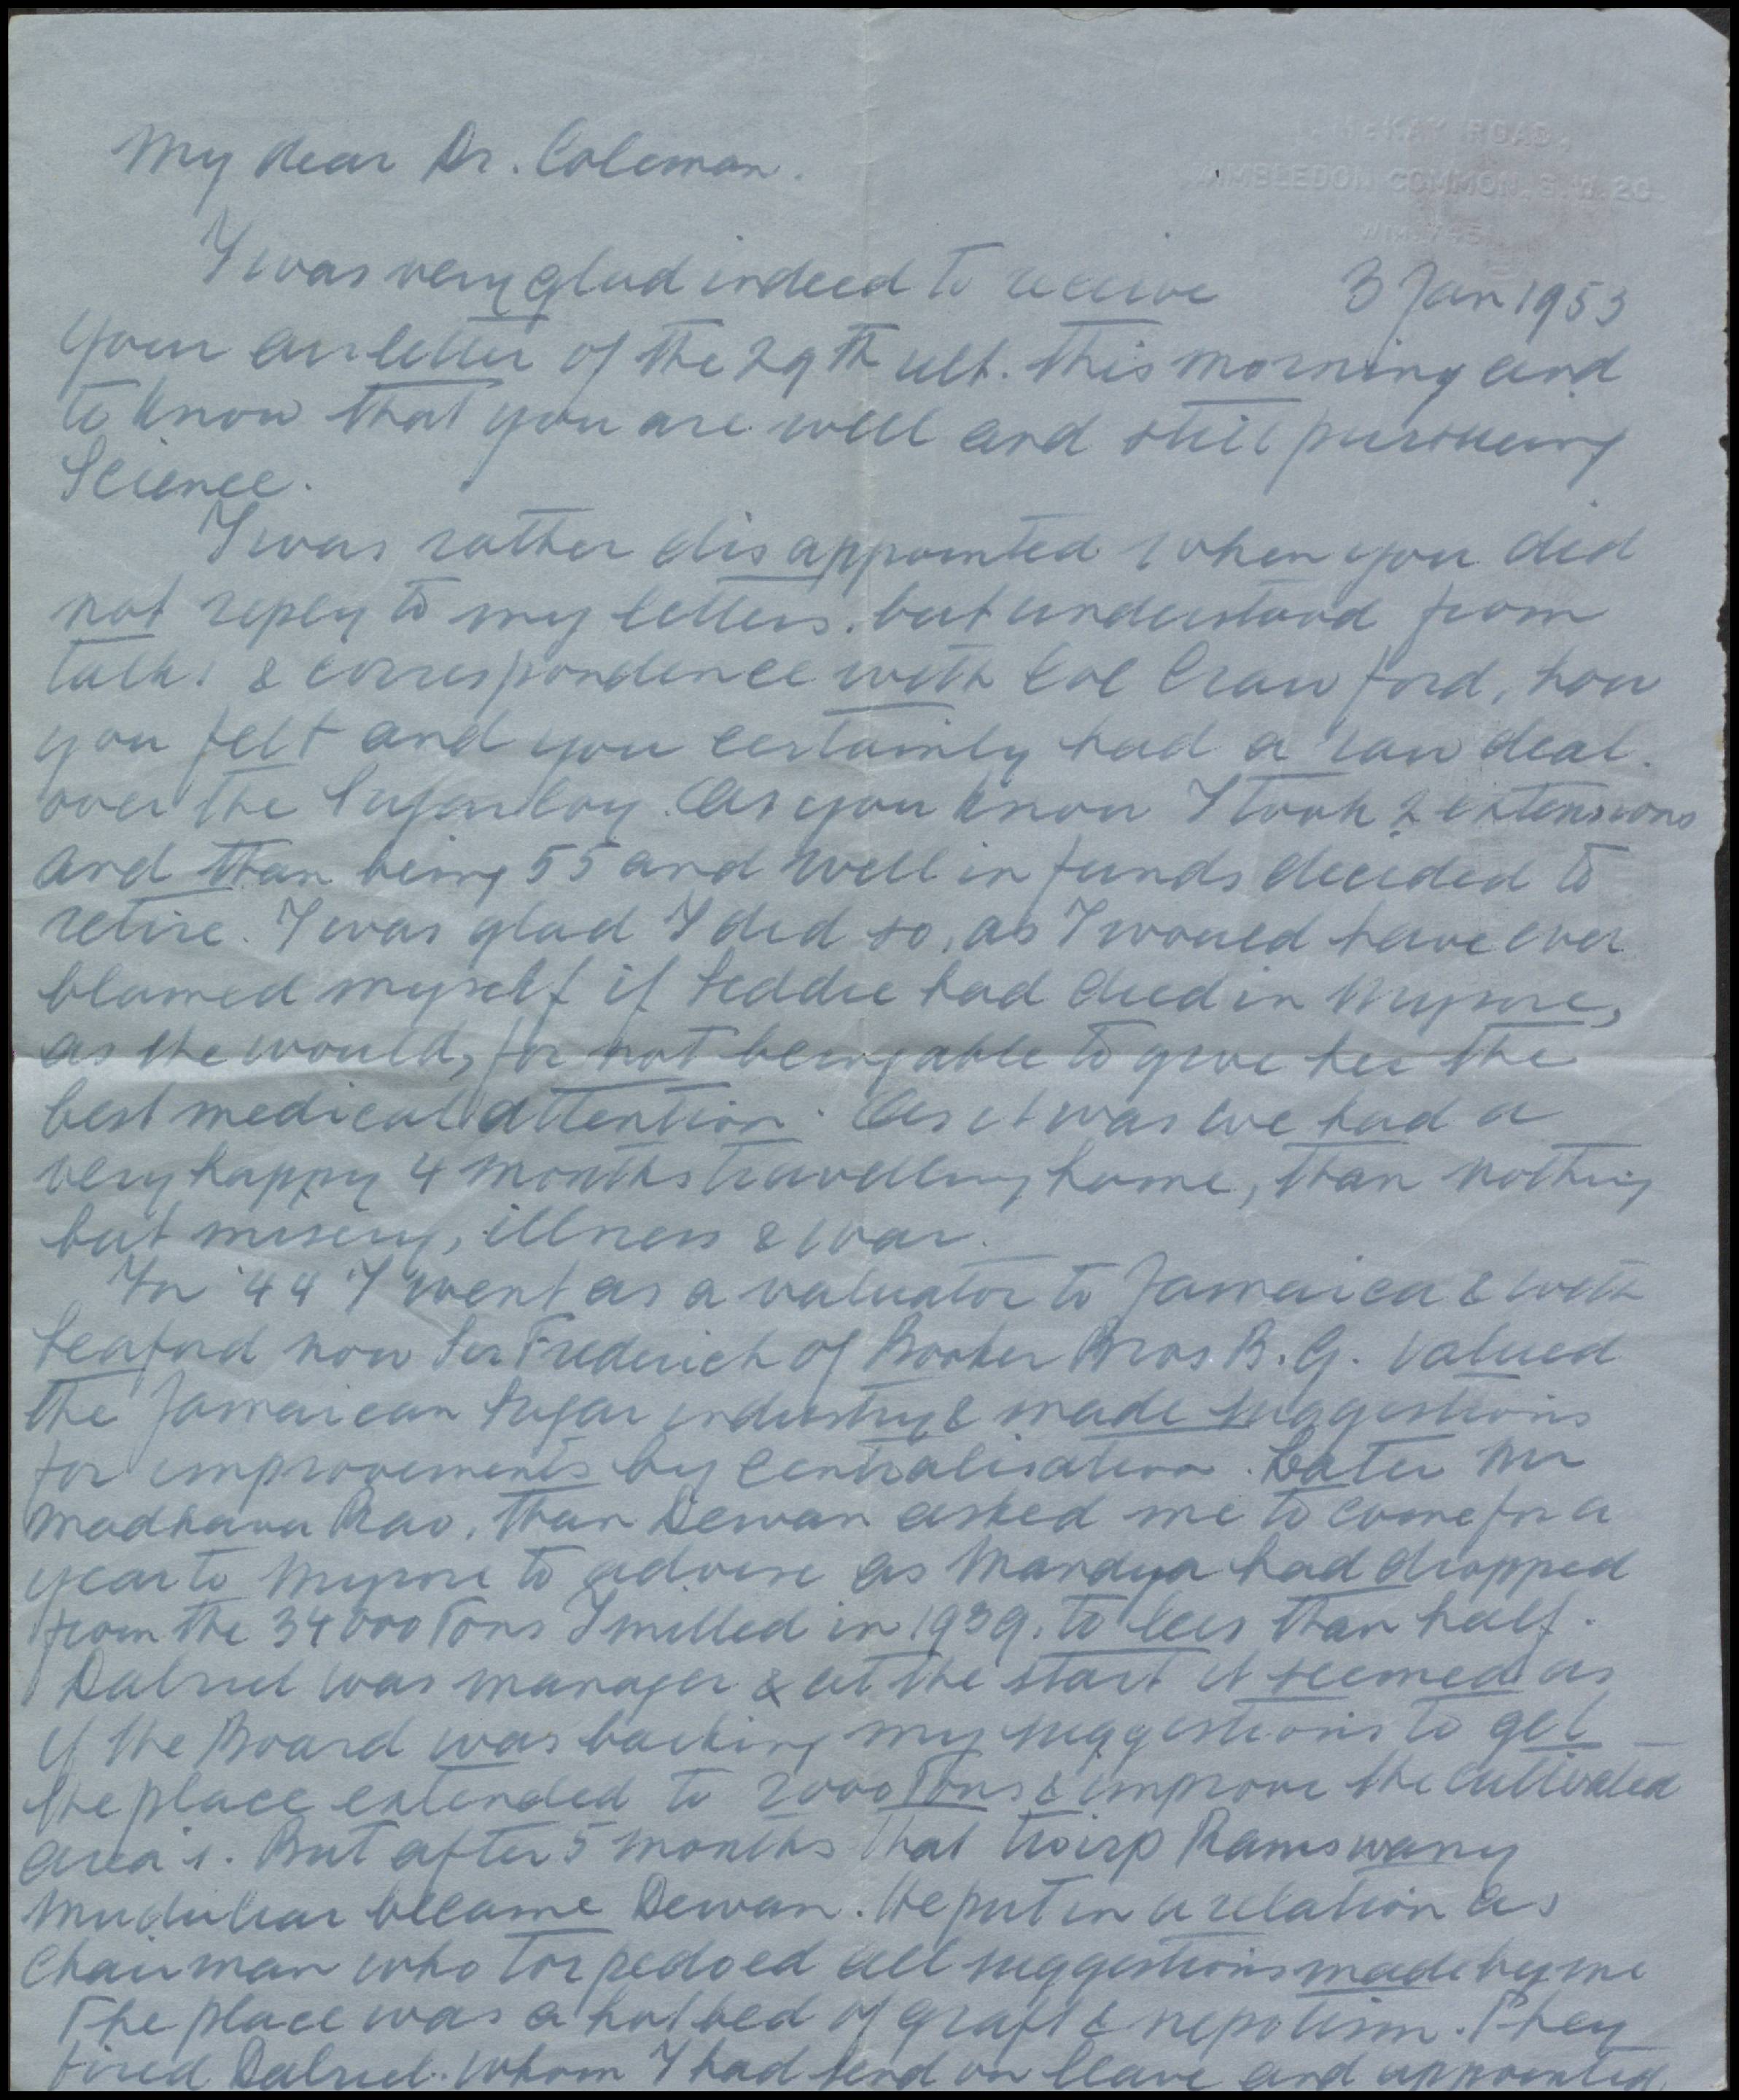 McKAY ROAD,
WIMBLEDON COMMON. S.W.20.
My dear Dr. Coleman.
3 Jan 1953
I was very glad indeed to receive
your air letter of the 29th ult. this morning and
to know that you are well and still pursueing
Science.
I was rather disappointed when you did
not reply to my letters. but understood from
talks & correspondence with Col Crawford, how
you felt and you certainly had a raw deal.
over the Sugar Coy. As you know I took 2 extensions
and than being 55 and well in funds decided to
retire. I was glad I did so, as I would have ever
blamed myself if Seddie had died in Mysore,
as she would, for not being able to give her the
best medical attention. As it was we had a
very happy 4 months travelling home, than nothing
but misery, illness & war.
In '44 I went as a valuator to Jamaica & with
Seaford now Sir Frederick of Booker Bros B.G. valued
the Jamaican Sugar industry & made suggestions
for improvements by Centralisation. Later Mr
Madhava Rao, than Dewan asked me to come for a
year to Mysore to advise as Mandya had dropped
from the 34000 Tons I milled in 1939. to less than half.
Dalziel was manager & at the start it seemed as
if the Board was backing my suggestions to get
the place extended to 2000 Tons & improve the cultivated
area's. But after 5 months that twirp Ramswamy
Muduliar became Dewan. He put in a relation as
Chairman who torpedoed all suggestions made by me
The place was a hotbed of graft & nepotism. They
fired Dalziel. whom I had send on leave and appointed